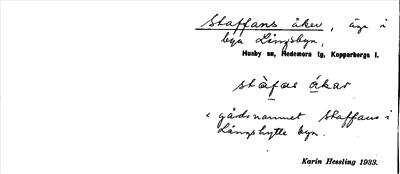 Staffans åker, äga i
byn Långsbyn,
Husby sn, Hedemora tg, Kopparbergs l.
stàfas åkar
< gårdsnamnet Staffans i
Långshytte byn.
Karin Hessling 1933.